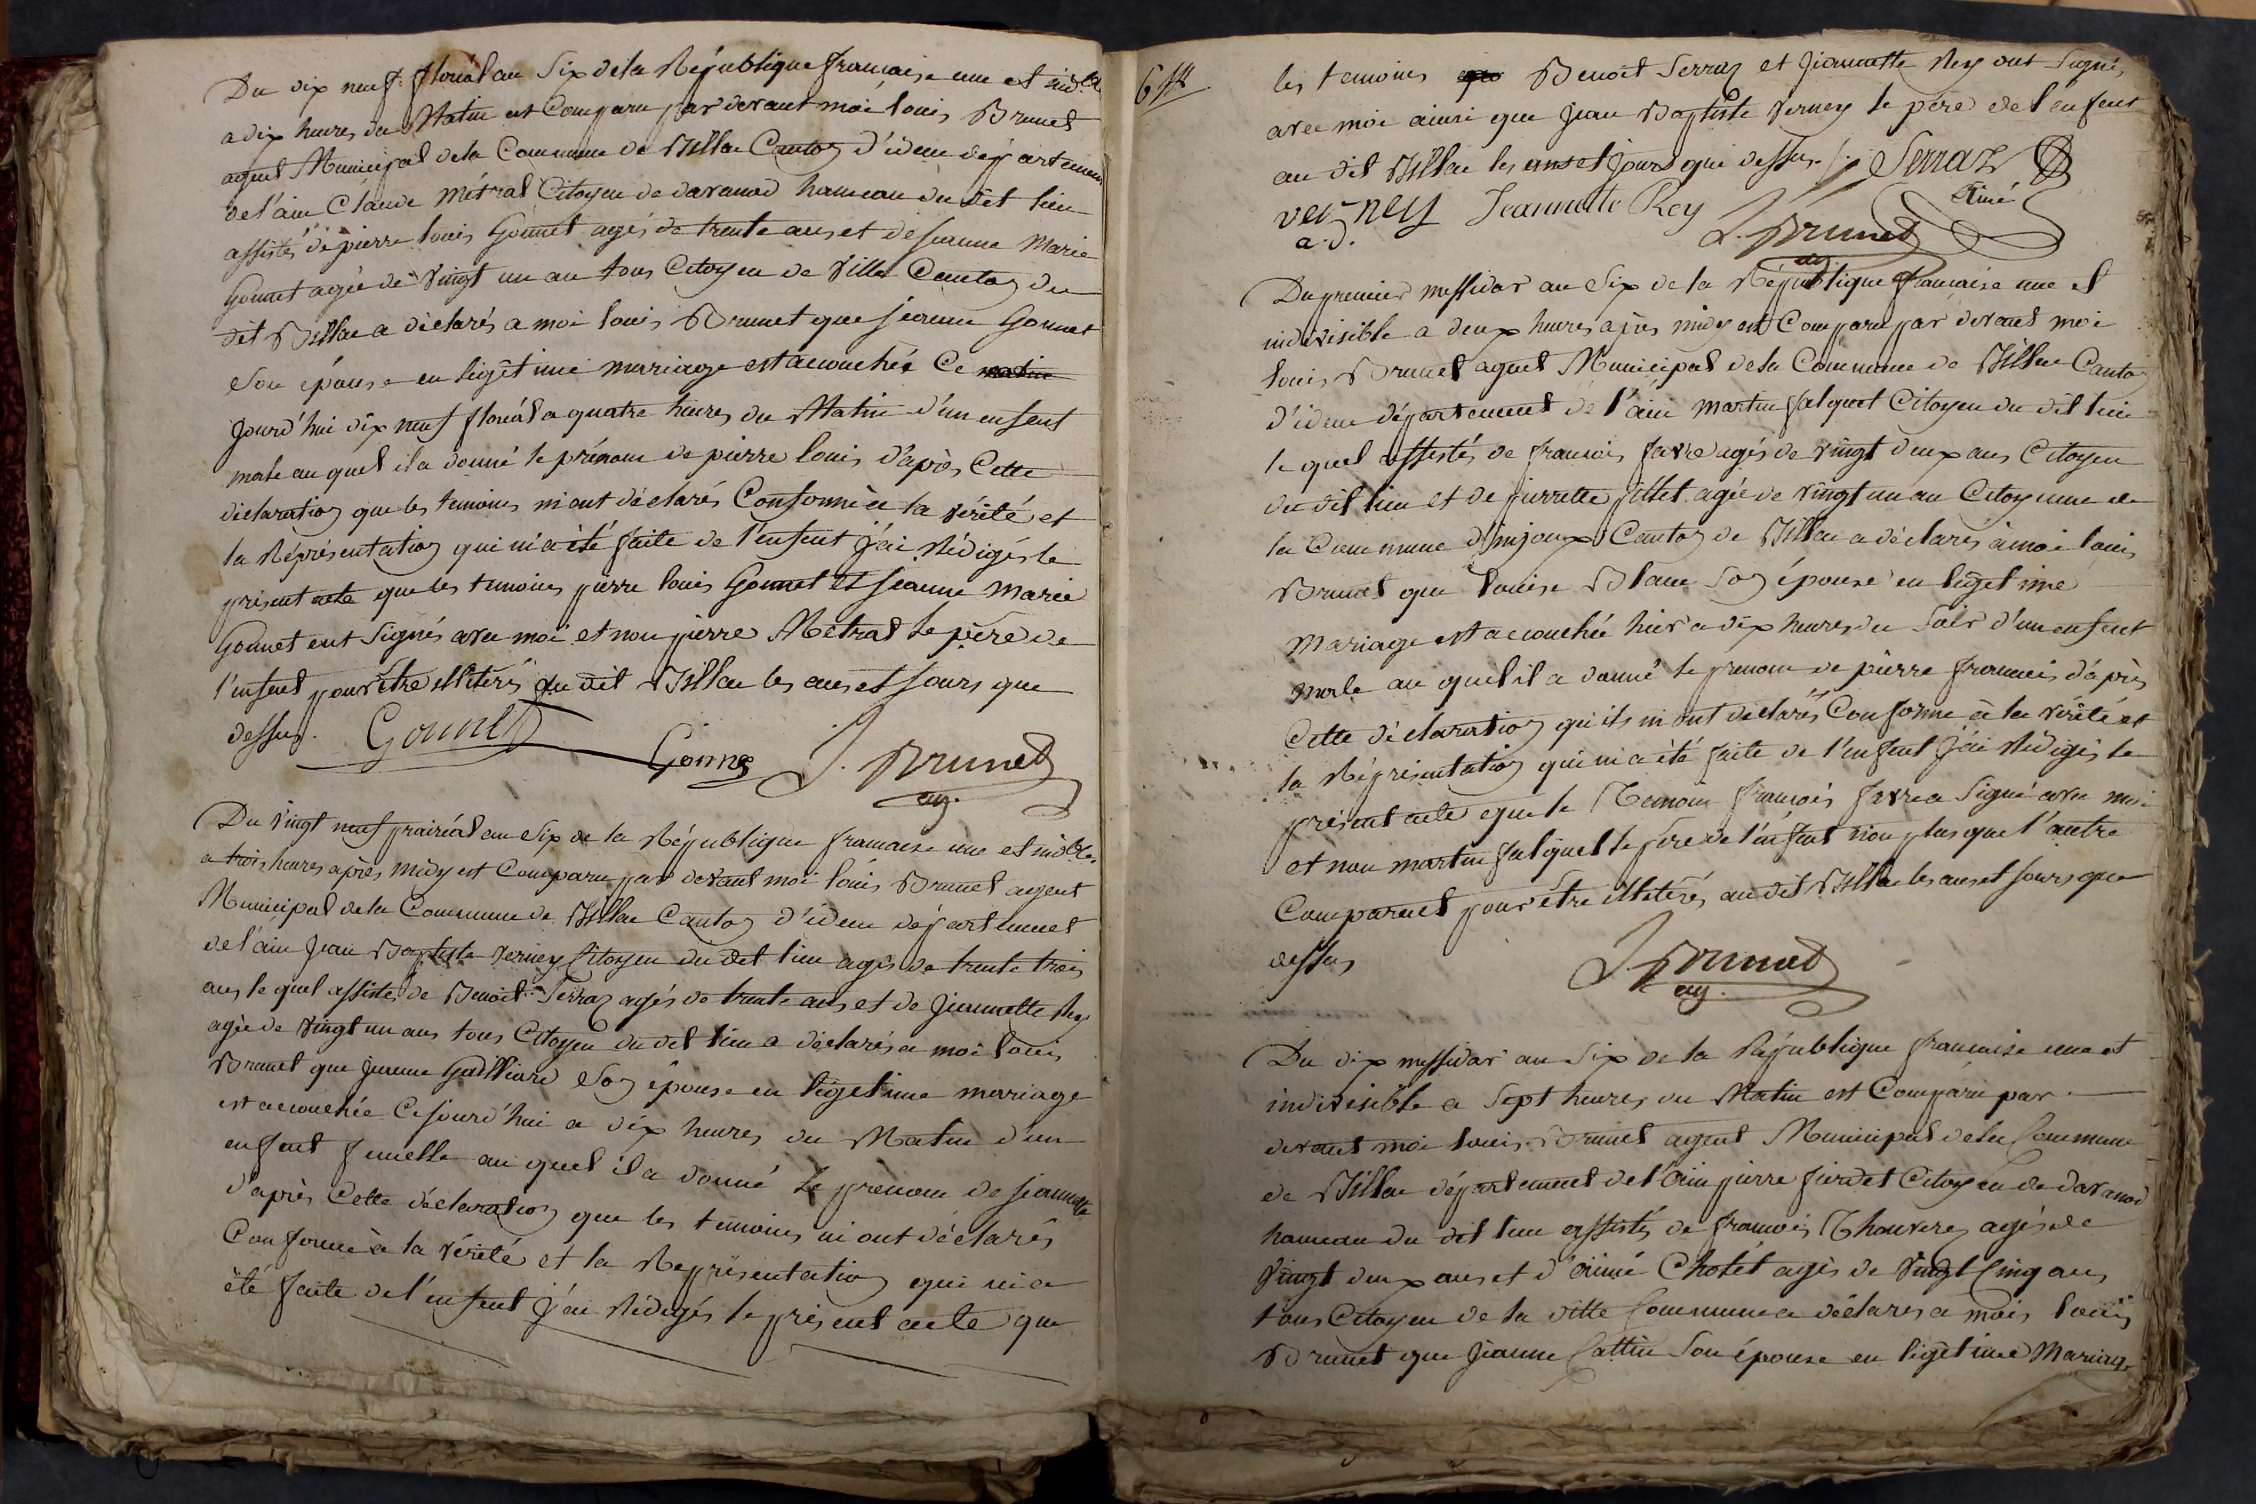 Du dix neuf floréal an Six de la République francaise une et indble
a dix heures du Matin est Comparu par devant moi louis Brunet
agent Municipal de la Commune de Billiat Canton d'idem département
de l'ain Claude Métral Citoyen de davanod hameau du dit lieu
assistés de pierre louis Gonnet agés de trente ans et de jeanne Marie
Gonnet agée de Vingt un an tous Citoyen de Ville Canton du
dit Billiat a déclarés a moi louis Brunet que jeanne Gonnet
Son épouse en légitime mariage est acouchée Ce matin
jourd'hui dix neuf floréal a quatre heures du Matin d'un enfent
male au quel il a donné le prénom de pierre louis d'après Cette
déclaration que les temoins m'ont déclarés Conforme à la vérité et
la Réprésentation qui m'a été faite de l'enfent j'ai Rédigés le
présent acte que les temoins pierre louis Gonnet et jeanne Marie
Gonnet ont Signés avec moi et non pierre Métral le père de
l'enfent pour être illiterés au dit Billiat les ans et jours que
dessus. Gonnet
Gonne L. Brunet
ag.
Du Vingt neuf prairéal an Six de la République francaise une et indble
a trois heures après midy est Comparu par devant moi louis Brunet agent
Municipal de la Commune de Billiat Canton d'idem département
de l'ain jean Baptiste Verney Citoyen du dit lieu agés de trente trois
ans le quel assistés de Benoit Serraz agés de trente ans et de jeannette Rey
agée de Vingt un ans tous Citoyen du dit lieu a déclarés a moi louis
Brunet que jeanne Gailliard Son épouse en légitime mariage
est acouchée Cejourd'hui a dix heures du Matin d'un
enfent femelle au quel il a donné le prenom de jeannette
d'après Cette déclaration que les temoins m'ont déclarés
Conforme à la vérité et la Représentation qui m'a
été faite de l'enfent j'ai Rédigés le présent acte que
6
les temoins Benoit Serraz et jeannette Rey ont Signés
avec moi ainsi que jean Baptiste Verney le père de l'enfent
au dit Billiat les ans et jours que dessus. Serraz
Aimé
verney Jeannette Rey L. Brunet
a.d. ag
Du premier messidor an Six de la République francaise une et
indivisible a deux heures apres midy est Comparu par devant moi
louis Brunet agent Municipal de la Commune de Billiat Canton
d'idem département de l'ain martin falquet Citoyen du dit lieu
le quel assistés de francois favre agés de vingt deux ans Citoyen
du dit lieu et de pierrette pittet agée de vingt un an Citoyenne de
la Commune d'injoux Canton de Billiat a déclarés à moi louis
Brunet que louise Blanc Son épouse en légetime
Mariage est acouchée hier a dix heures du Soir d'un enfent
male au quel il a donné le prenom de pierre francois d'après
Cette déclaration qu'ils m'ont déclarés Conforme à la vérité et
la Réprésentation qui m'a été faite de l'enfent j'ai Rédigés le
présent acte que le Temoin francois favre a Signé avec moi
et non martin falquet le père de l'enfent non plus que l'autre
Comparuet pour être illiterés au dit Billiat les ans et jours que
dessus L. Brunet
ag.
Du dix messidor an Six de la République francaise une et
indivisible a Sept heures du Matin est Comparu par
devant moi louis Brunet agent Municipal de la Commune
de Billiat département de l'Ain pierre Citoyen de davanod
hameau du dit lieu assistés de francois Thouverey agés de
Vingt deux ans et d'aimé Chotét agés de Vingt Cinq ans
tous Citoyen de la ditte Commune a déclarés a mois louis
Brunet que jeanne Cattin Son épouse en légitime Mariage